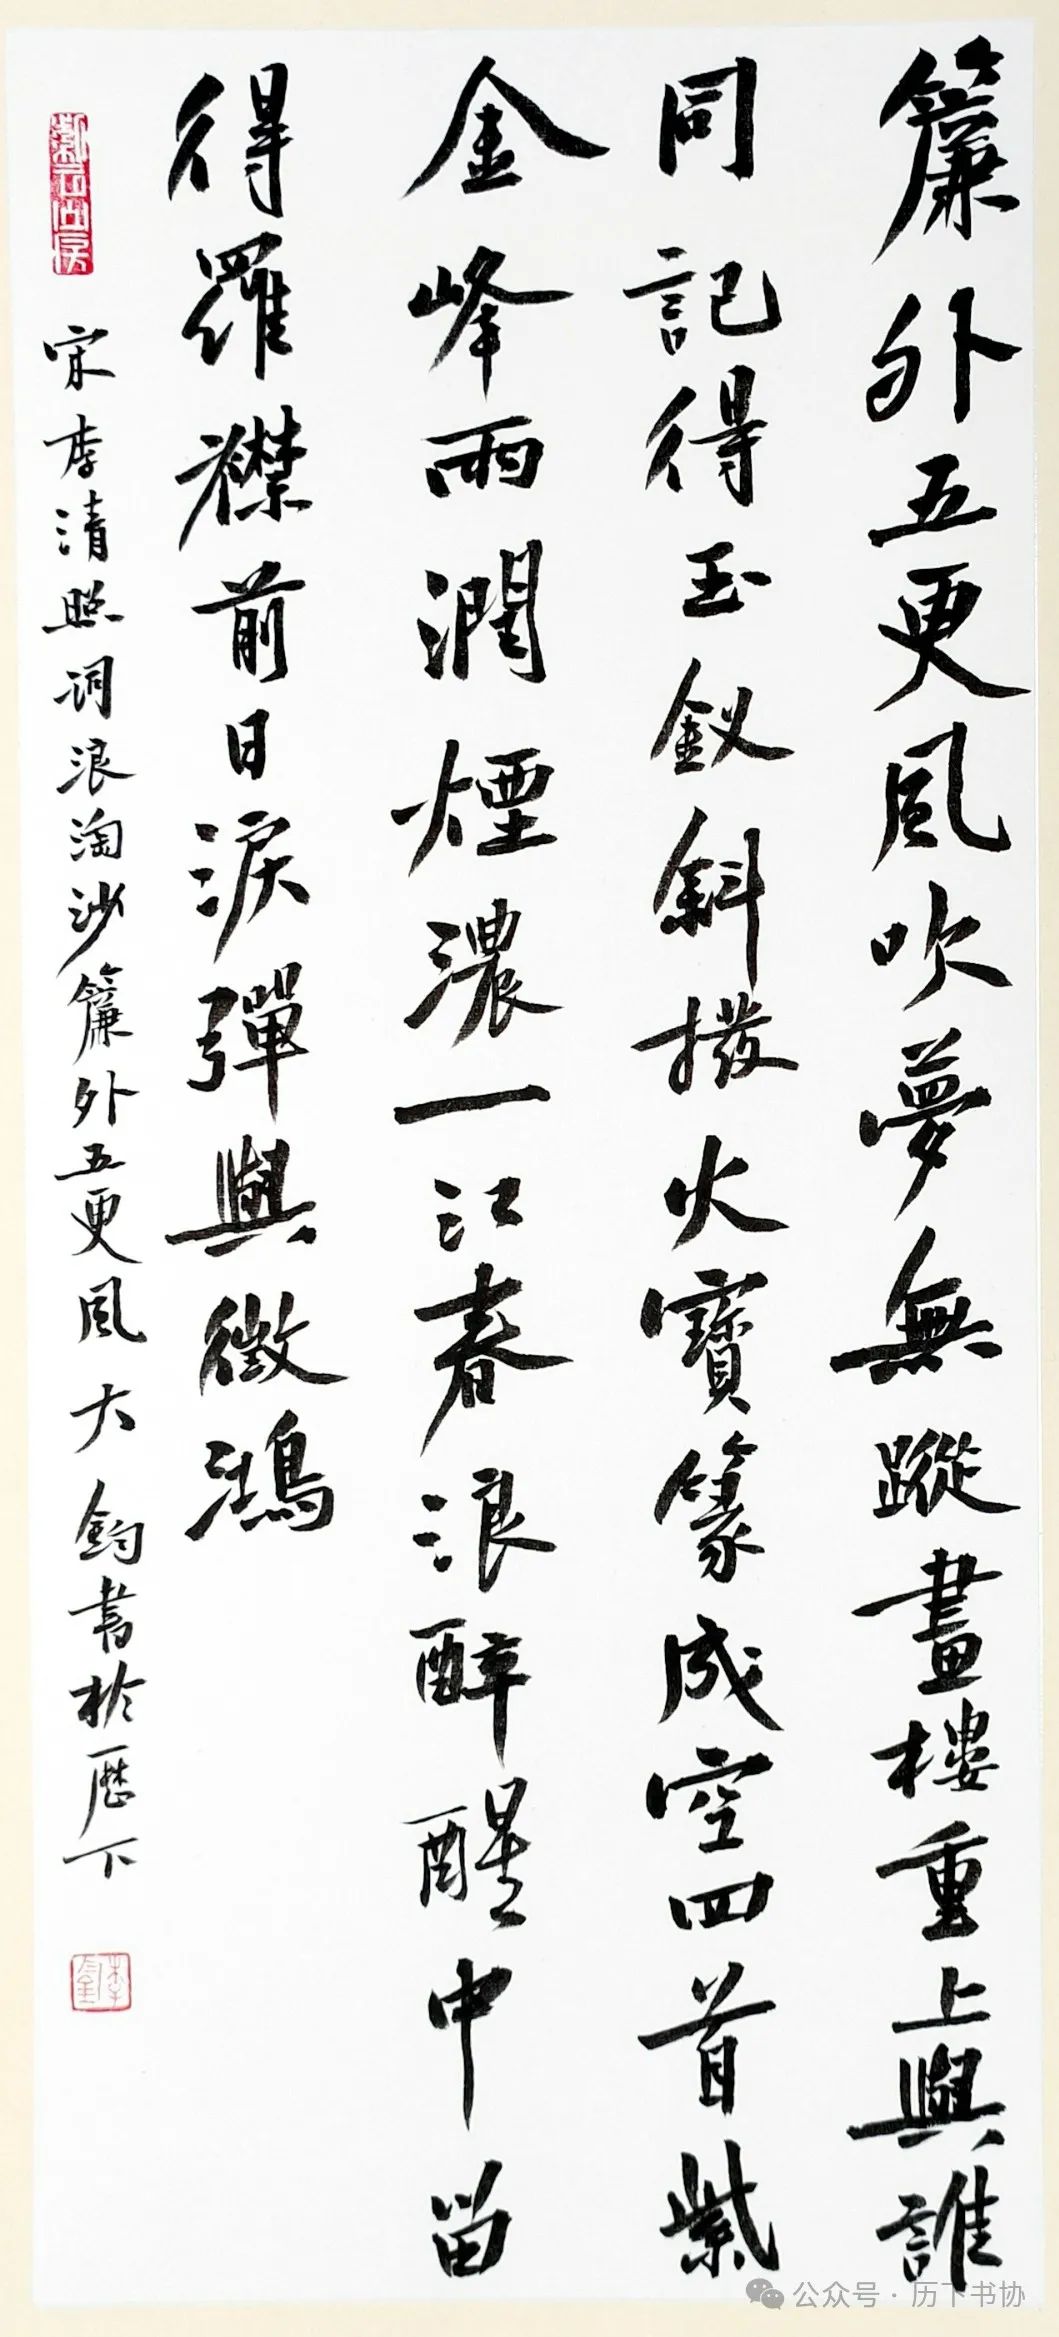 簾外五更風吹夢無蹤畫樓重上與誰
同記得玉釵斜撥火寶篆成空回首紫
金峰雨潤煙濃一江春浪醉醒中留
得羅襟前日淚彈與徵鴻
宋李清照詞浪淘沙簾外五更風 大鈞書於歷下
公众号·历下书协